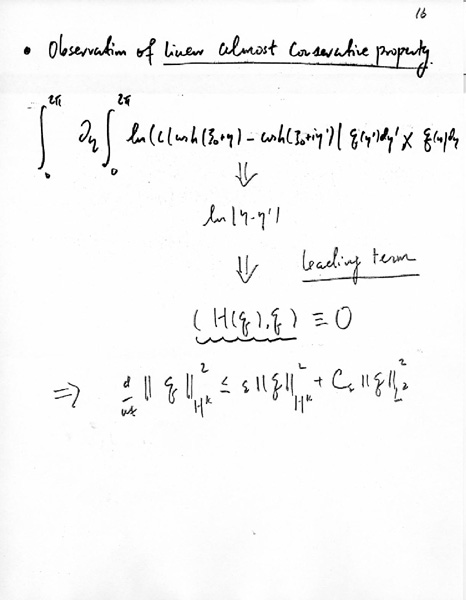 16
• Observation of linear almost conservative property.
∫₀^{2π} ∂_η ∫₀^{2π} ln(c|cosh(ξ₀+η) - cosh(ξ₀+iη')| ξ(η')dη' × ξ(η)dη
⇓
ln|η-η'|
⇓ leading term
(H(ξ),ξ) ≡ 0
⇒ d/dt ‖ξ‖²_{H^k} ≤ ε‖ξ‖²_{H^k} + C_ε‖ξ‖²_{L²}